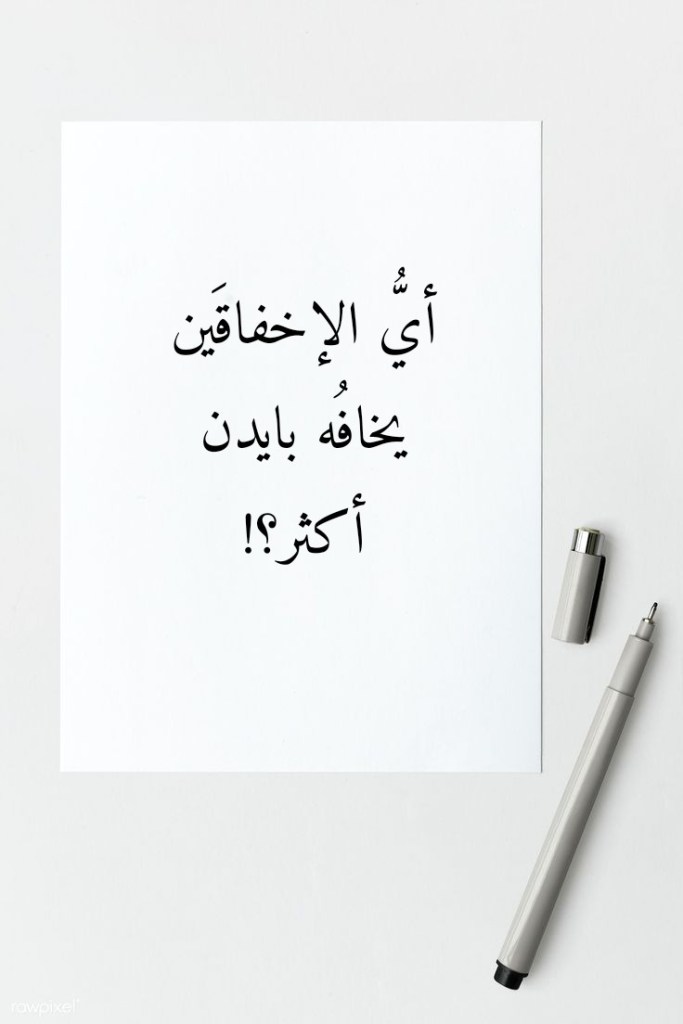 أيُّ الإخفاقَين
يخافُه بايدن
أكثر؟!
rawpixel